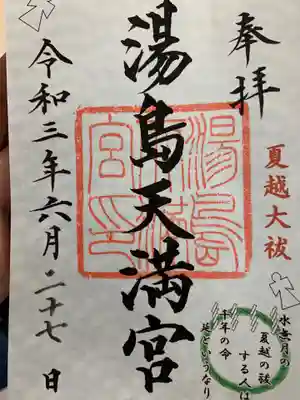 奉拝
夏越大祓
湯島天満宮
令和三年六月二十七日
湯島天満宮印
水無月の
夏越の祓
する人は
千年の命
延というなり